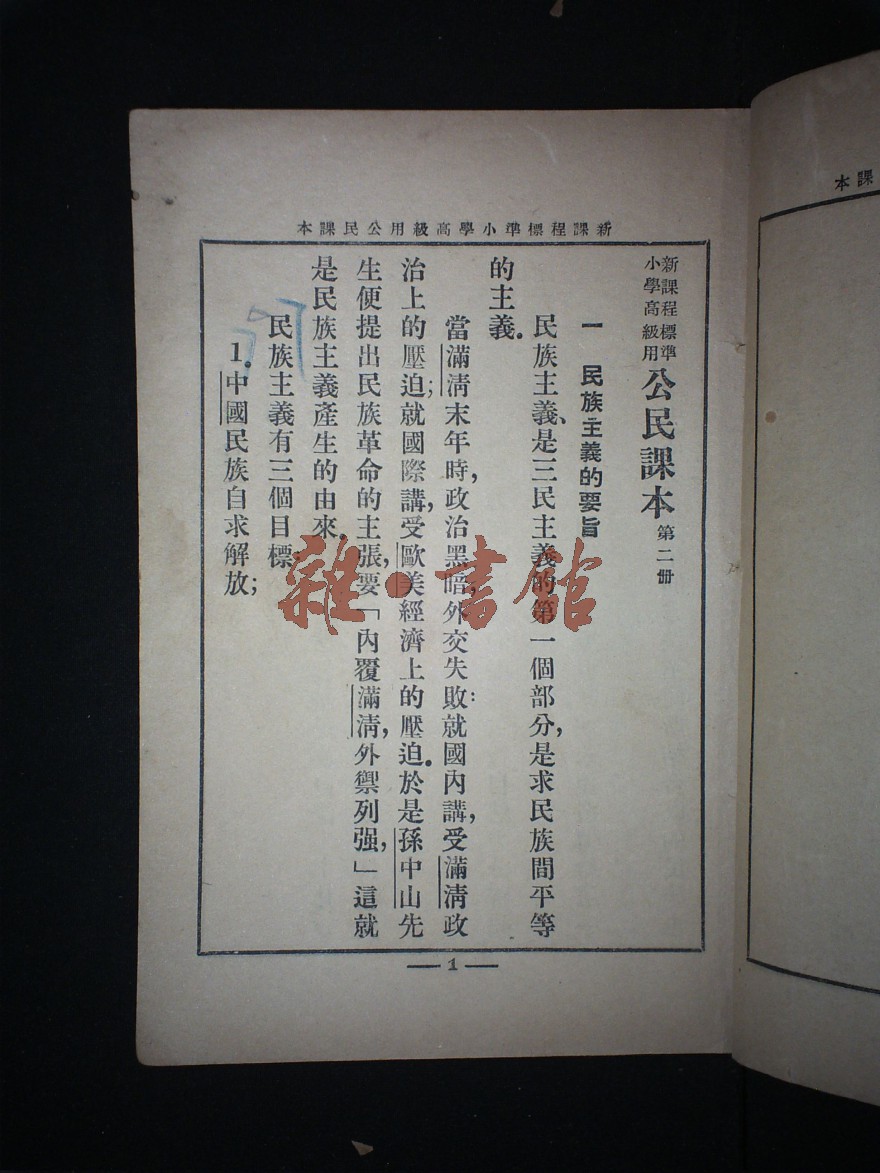 本課民公用級高學小準標程課新
新課程標準
小學高級用
公民課本 第二册
一 民族主義的要旨
民族主義、是三民主義的第一個部分，是求民族間平等
的主義。
當滿清末年時，政治黑暗，外交失敗：就國內講，受滿清政
治上的壓迫；就國際講，受歐美經濟上的壓迫。於是孫中山先
生便提出民族革命的主張，要「內覆滿清，外禦列强，」這就
是民族主義產生的由來。
民族主義有三個目標：
1.中國民族自求解放；
1
本課
雜·書館